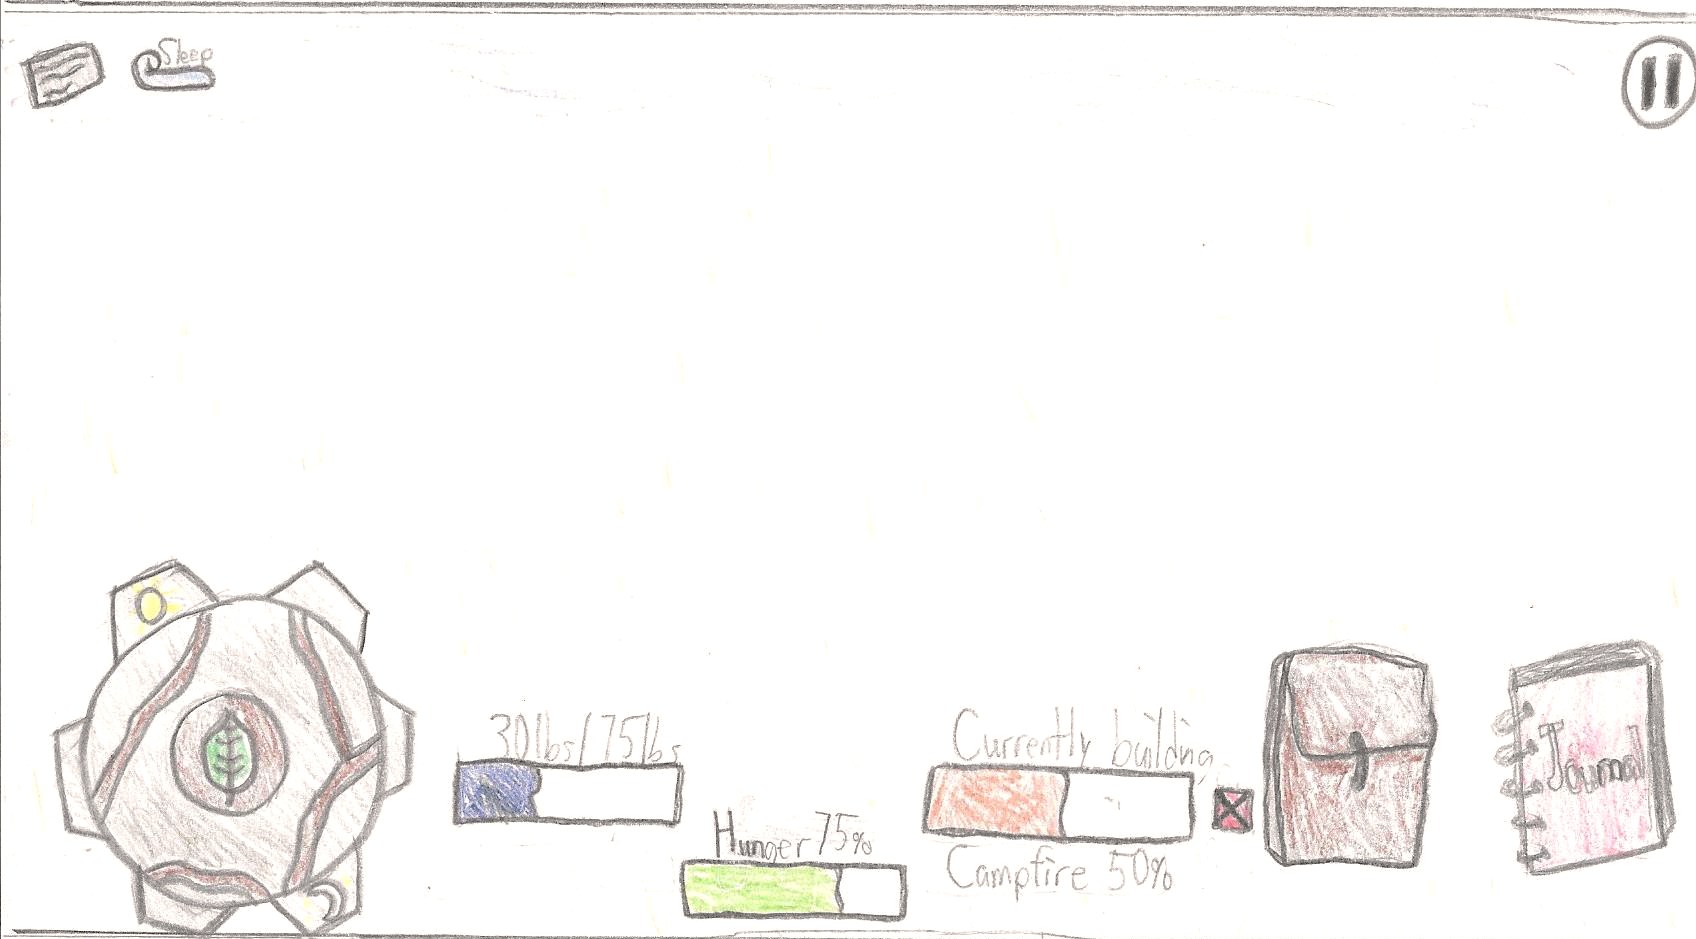 Sleep
30lbs/75lbs
Hunger 75%
Currently building
Campfire 50%
Journal